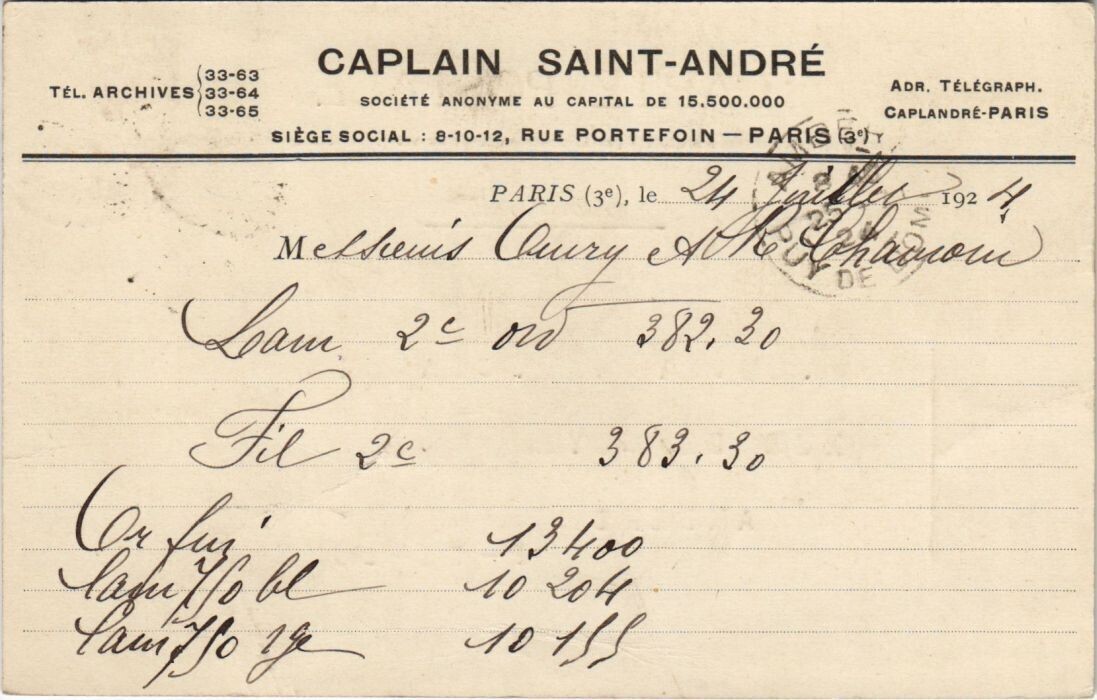 CAPLAIN SAINT-ANDRÉ
TÉL. ARCHIVES { 33-63
33-64
33-65
SOCIÉTÉ ANONYME AU CAPITAL DE 15.500.000
ADR. TÉLÉGRAPH.
CAPLANDRÉ-PARIS
SIÈGE SOCIAL : 8-10-12, RUE PORTEFOIN — PARIS (3e)
PARIS (3e), le 24 Juillet 1924
AMBERT
25
24
PUY DE DOM
Messieurs
Lam 2e 382.30
Fil 2e 383.30
Or fin 13400
Lam 750 bl 10 204
Lam 750 rge 10 155